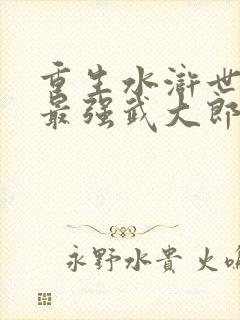 重生水浒世
最强武大郎
永野水貴 火